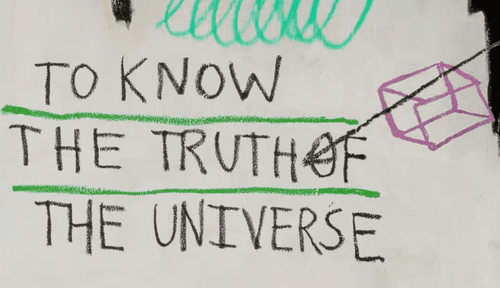 TO KNOW
THE TRUTH OF
THE UNIVERSE